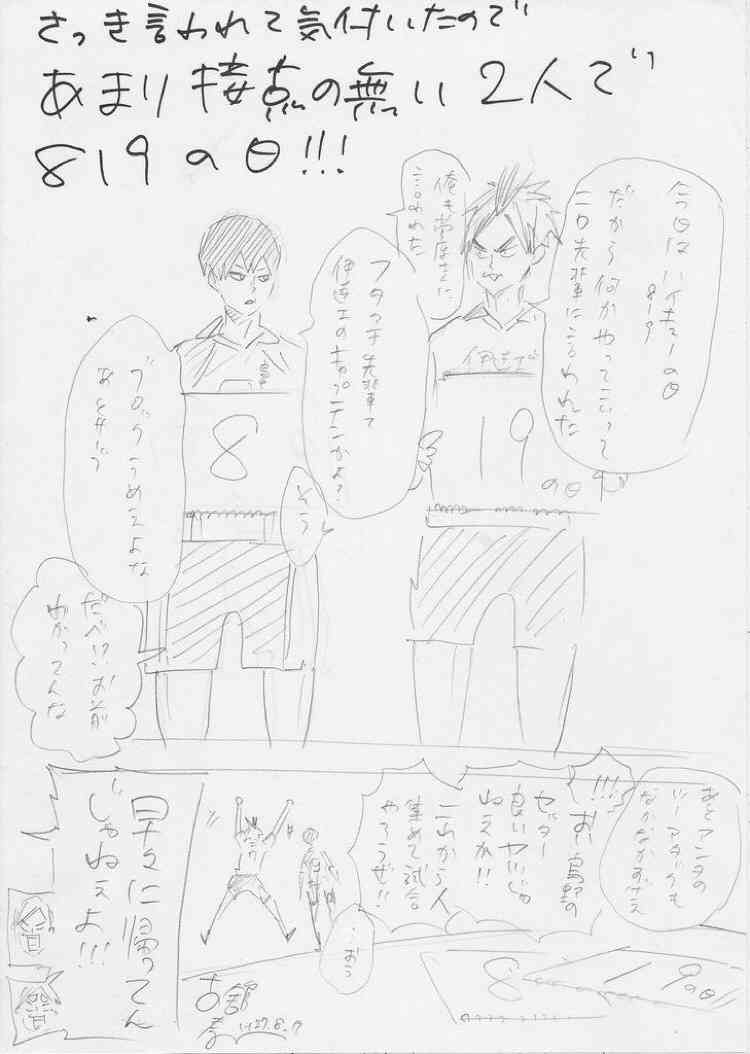 さっき言われて気付いたので
あまり接点の無い2人で
819の日!!!
今日はハイキューの日
819
だから何かやってこいって
二口先輩に言われた
俺も菅原さんに
言われた
フタクチ先輩て
伊達工のキャプテンかよ?
伊達工
19
の日で
8
そう
ブロックうめえよな
あとサーブ
だべ!!お前
わかってんな
あとアンタの
ツーアタックも
なかなかすげえ
!!!
おい烏野の
セッター
良いヤツじゃ
ねえか!!
これから人
集めて試合
やろうぜ!!
おう
8
19の日
早々に帰ってん
じゃねぇよ!!!
古舘
H27.8.19